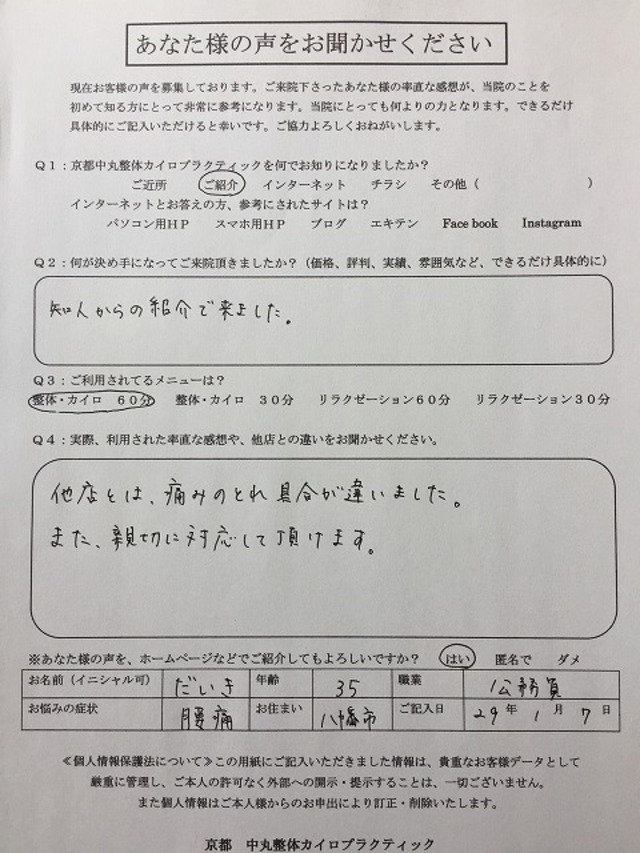 あなた様の声をお聞かせください
現在お客様の声を募集しております。ご来院下さったあなた様の率直な感想が、当院のことを
初めて知る方にとって非常に参考になります。当院にとっても何よりの力となります。できるだけ
具体的にご記入いただけると幸いです。ご協力よろしくおねがいします。
Q1:京都中丸整体カイロプラクティックを何でお知りになりましたか?
ご近所 ご紹介 インターネット チラシ その他( )
インターネットとお答えの方、参考にされたサイトは?
パソコン用HP スマホ用HP ブログ エキテン Face book Instagram
Q2:何が決め手になってご来院頂きましたか?(価格、評判、実績、雰囲気など、できるだけ具体的に)
知人からの紹介で来ました。
Q3:ご利用されてるメニューは?
整体・カイロ 60分 整体・カイロ 30分 リラクゼーション60分 リラクゼーション30分
Q4:実際、利用された率直な感想や、他店との違いをお聞かせください。
他店とは、痛みのとれ具合が違いました。
また、親切に対応して頂けます。
※あなた様の声を、ホームページなどでご紹介してもよろしいですか? はい 匿名で ダメ
お名前(イニシャル可) だいき 年齢 35 職業 公務員
お悩みの症状 腰痛 お住まい 八幡市 ご記入日 29年 1月 7日
≪個人情報保護法について≫この用紙にご記入いただきました情報は、貴重なお客様データとして
厳重に管理し、ご本人の許可なく外部への開示・提示することは、一切ございません。
また個人情報はご本人様からのお申出により訂正・削除いたします。
京都 中丸整体カイロプラクティック